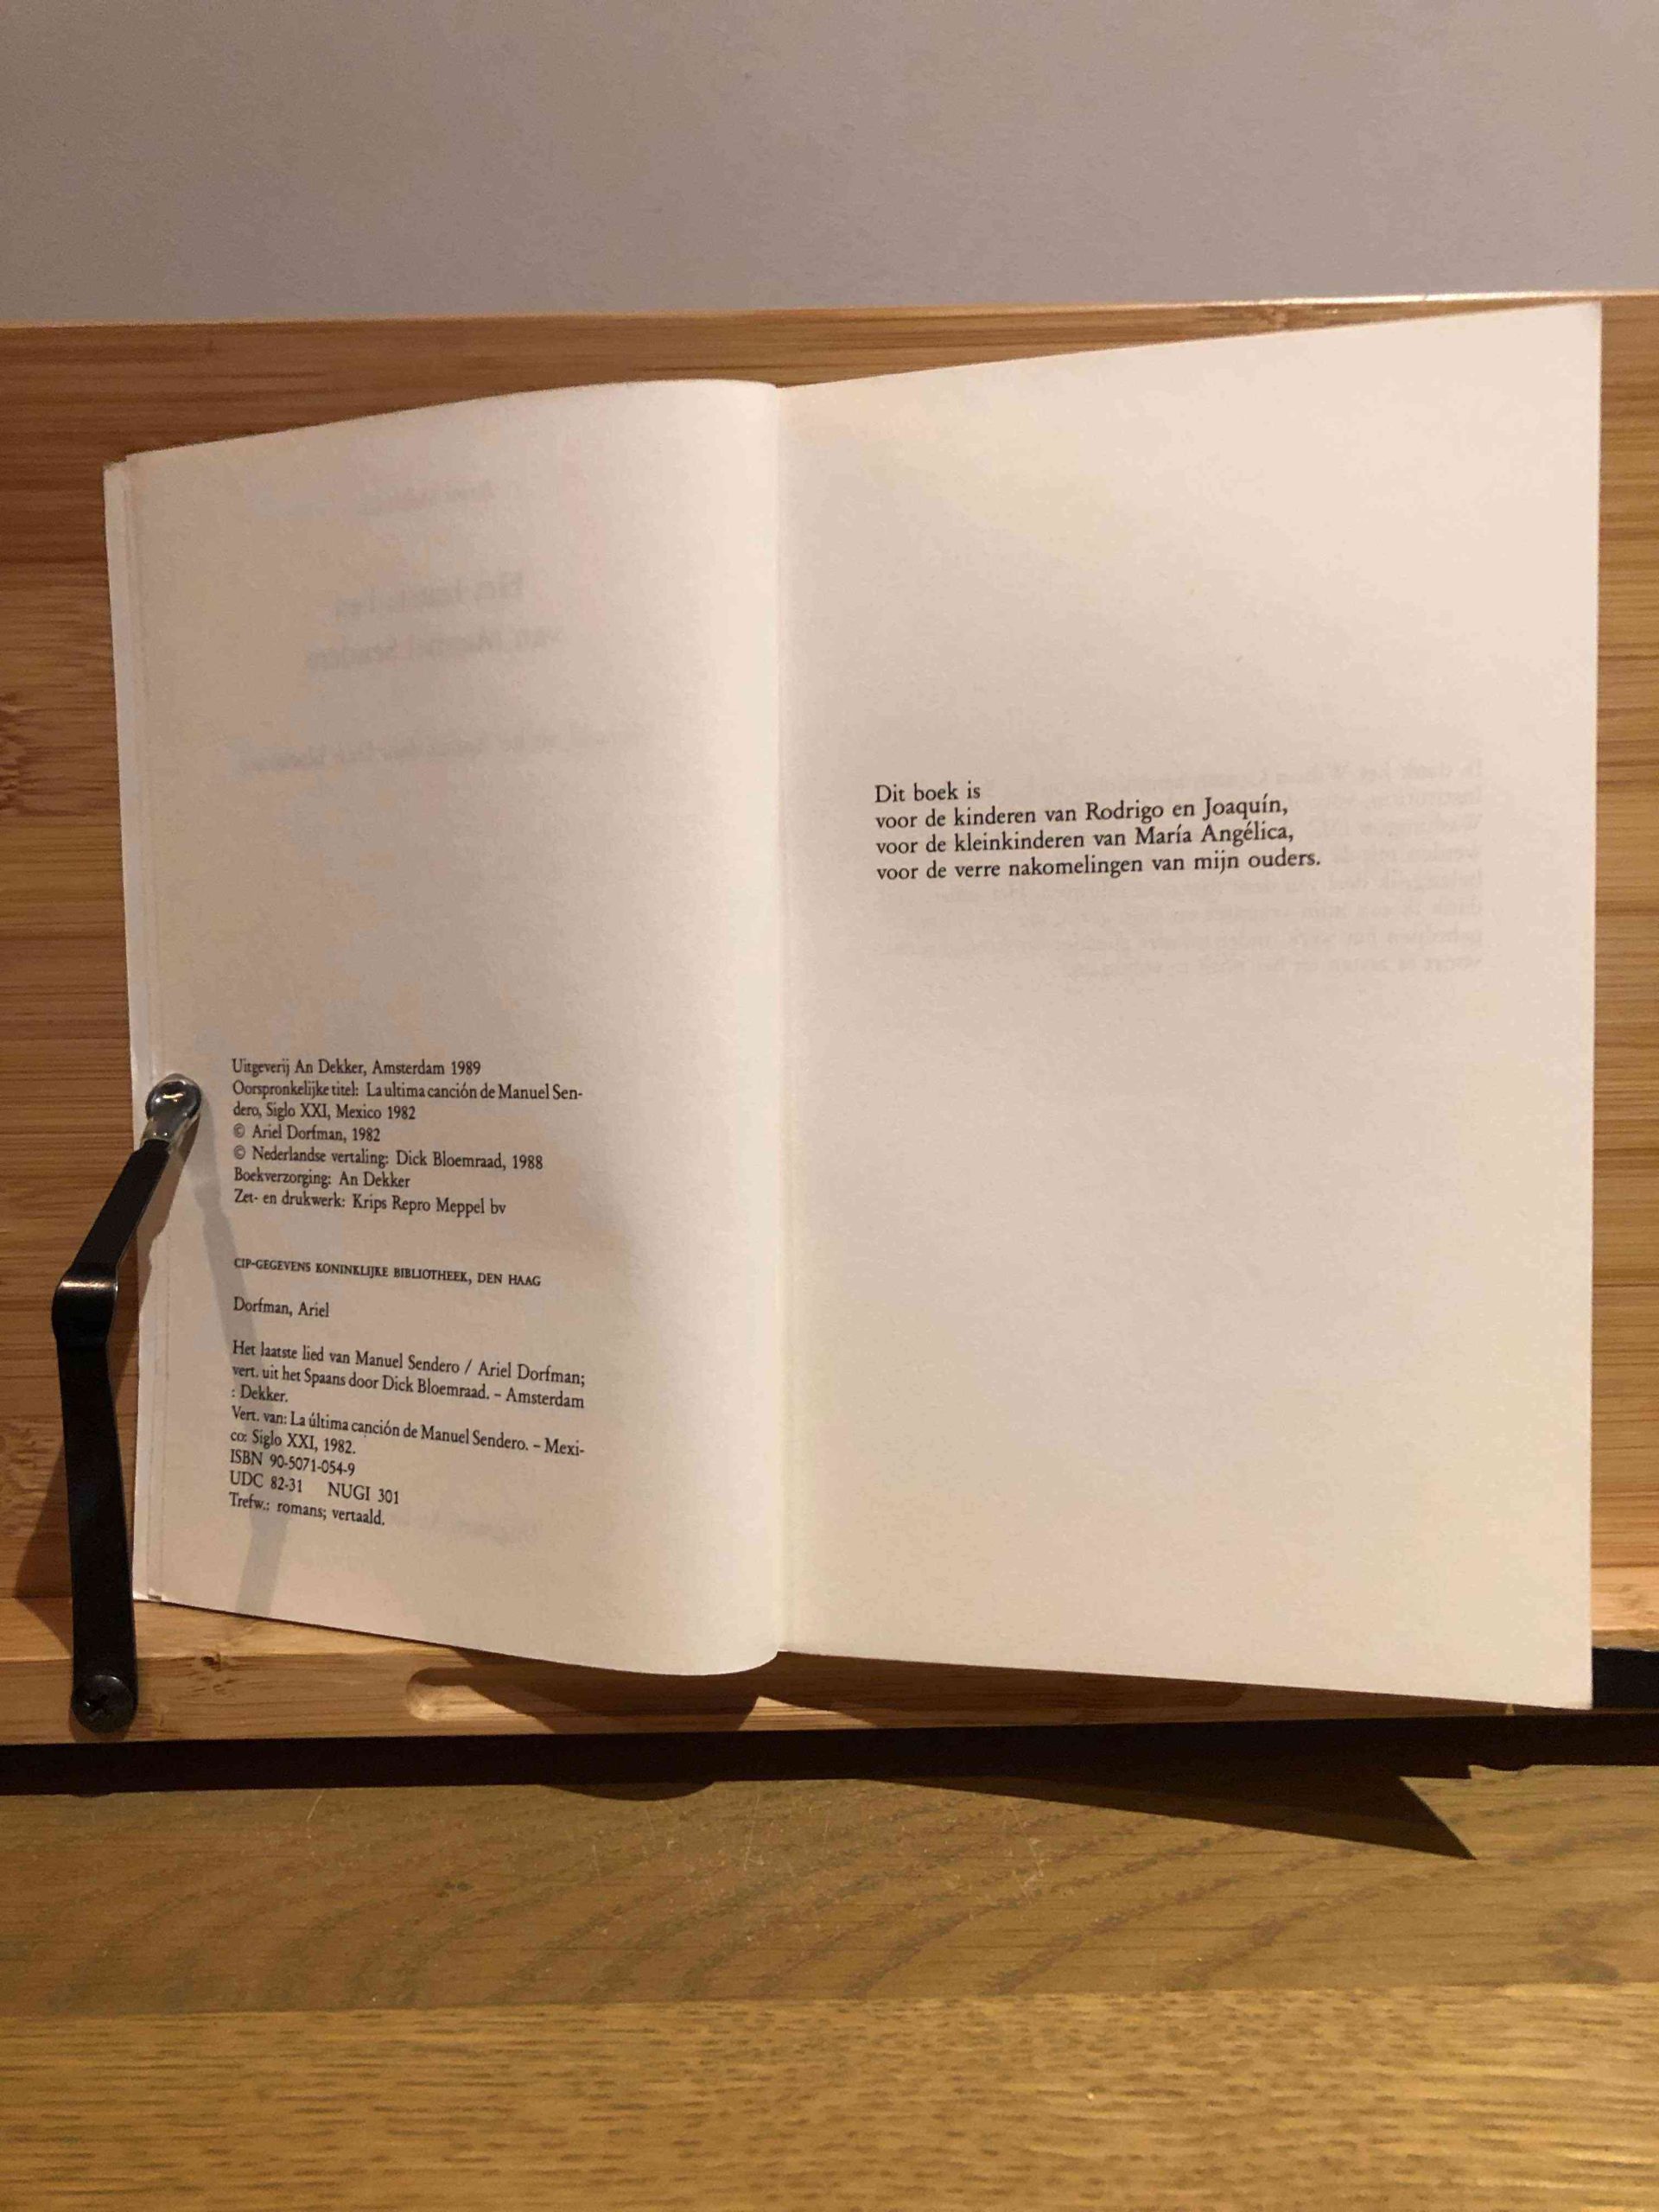 Uitgeverij An Dekker, Amsterdam 1989
Oorspronkelijke titel: La ultima canción de Manuel Sen-
dero, Siglo XXI, Mexico 1982
© Ariel Dorfman, 1982
© Nederlandse vertaling: Dick Bloemraad, 1988
Boekverzorging: An Dekker
Zet- en drukwerk: Krips Repro Meppel bv
CIP-GEGEVENS KONINKLIJKE BIBLIOTHEEK, DEN HAAG
Dorfman, Ariel
Het laatste lied van Manuel Sendero / Ariel Dorfman;
vert. uit het Spaans door Dick Bloemraad. – Amsterdam
: Dekker.
Vert. van: La última canción de Manuel Sendero. – Mexi-
co: Siglo XXI, 1982.
ISBN 90-5071-054-9
UDC 82-31 NUGI 301
Trefw.: romans; vertaald.
Dit boek is
voor de kinderen van Rodrigo en Joaquín,
voor de kleinkinderen van María Angélica,
voor de verre nakomelingen van mijn ouders.